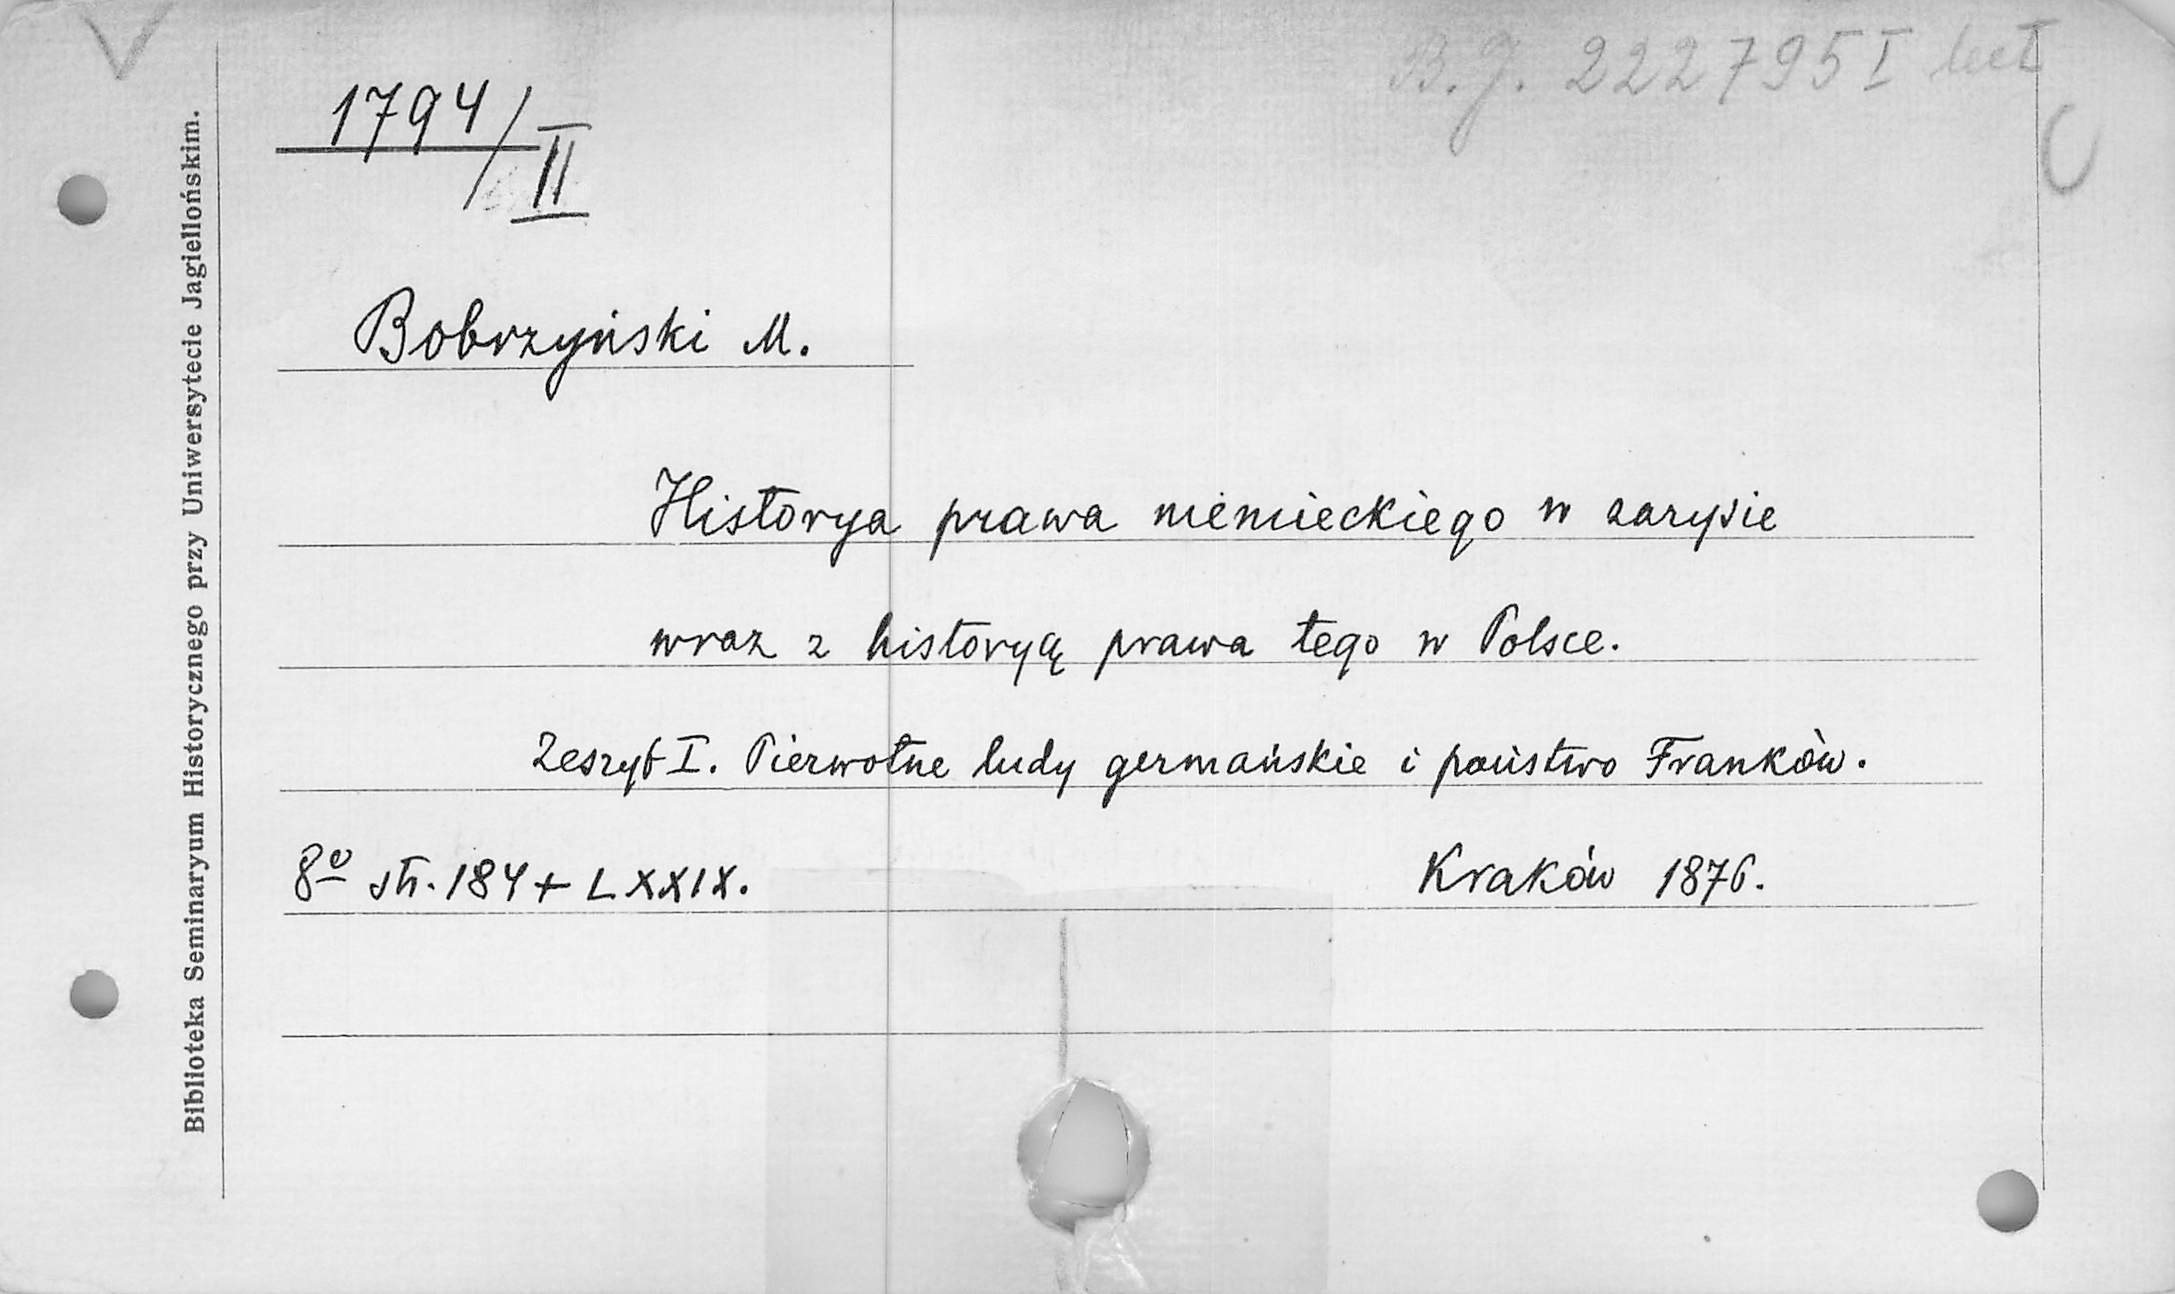 B.J. 222795 I
1794/II
Bobrzyński M.
Historya prawa niemieckiego w zarysie
wraz z historyą prawa tego w Polsce.
Zeszyt I. Pierwotne ludy germańskie i państwo Franków.
8º str. 184 + LXXIX. Kraków 1876.
Biblioteka Seminaryum Historycznego przy Uniwersytecie Jagiellońskim.